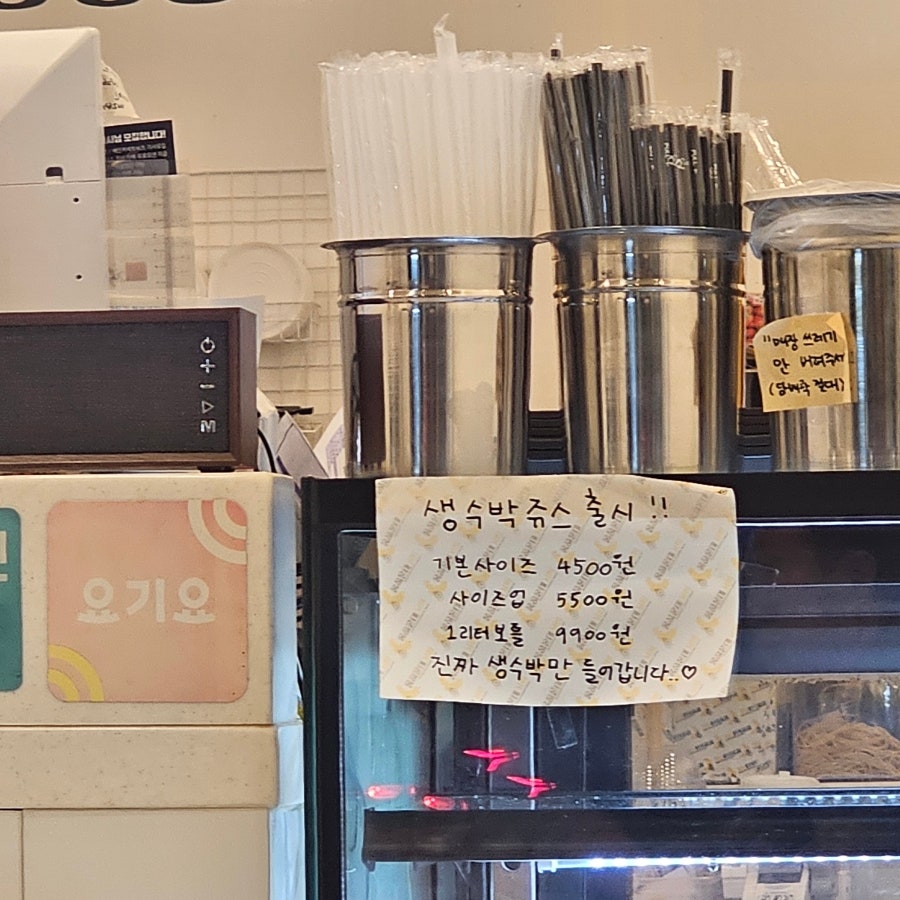 모집합니다!
요기요
M
"매장 쓰레기
안 버려주셔
생수박쥬스 출시 !!
기본사이즈 4500원
사이즈업 5500원
1리터보틀 9900원
진짜 생수박만 들어갑니다..♡